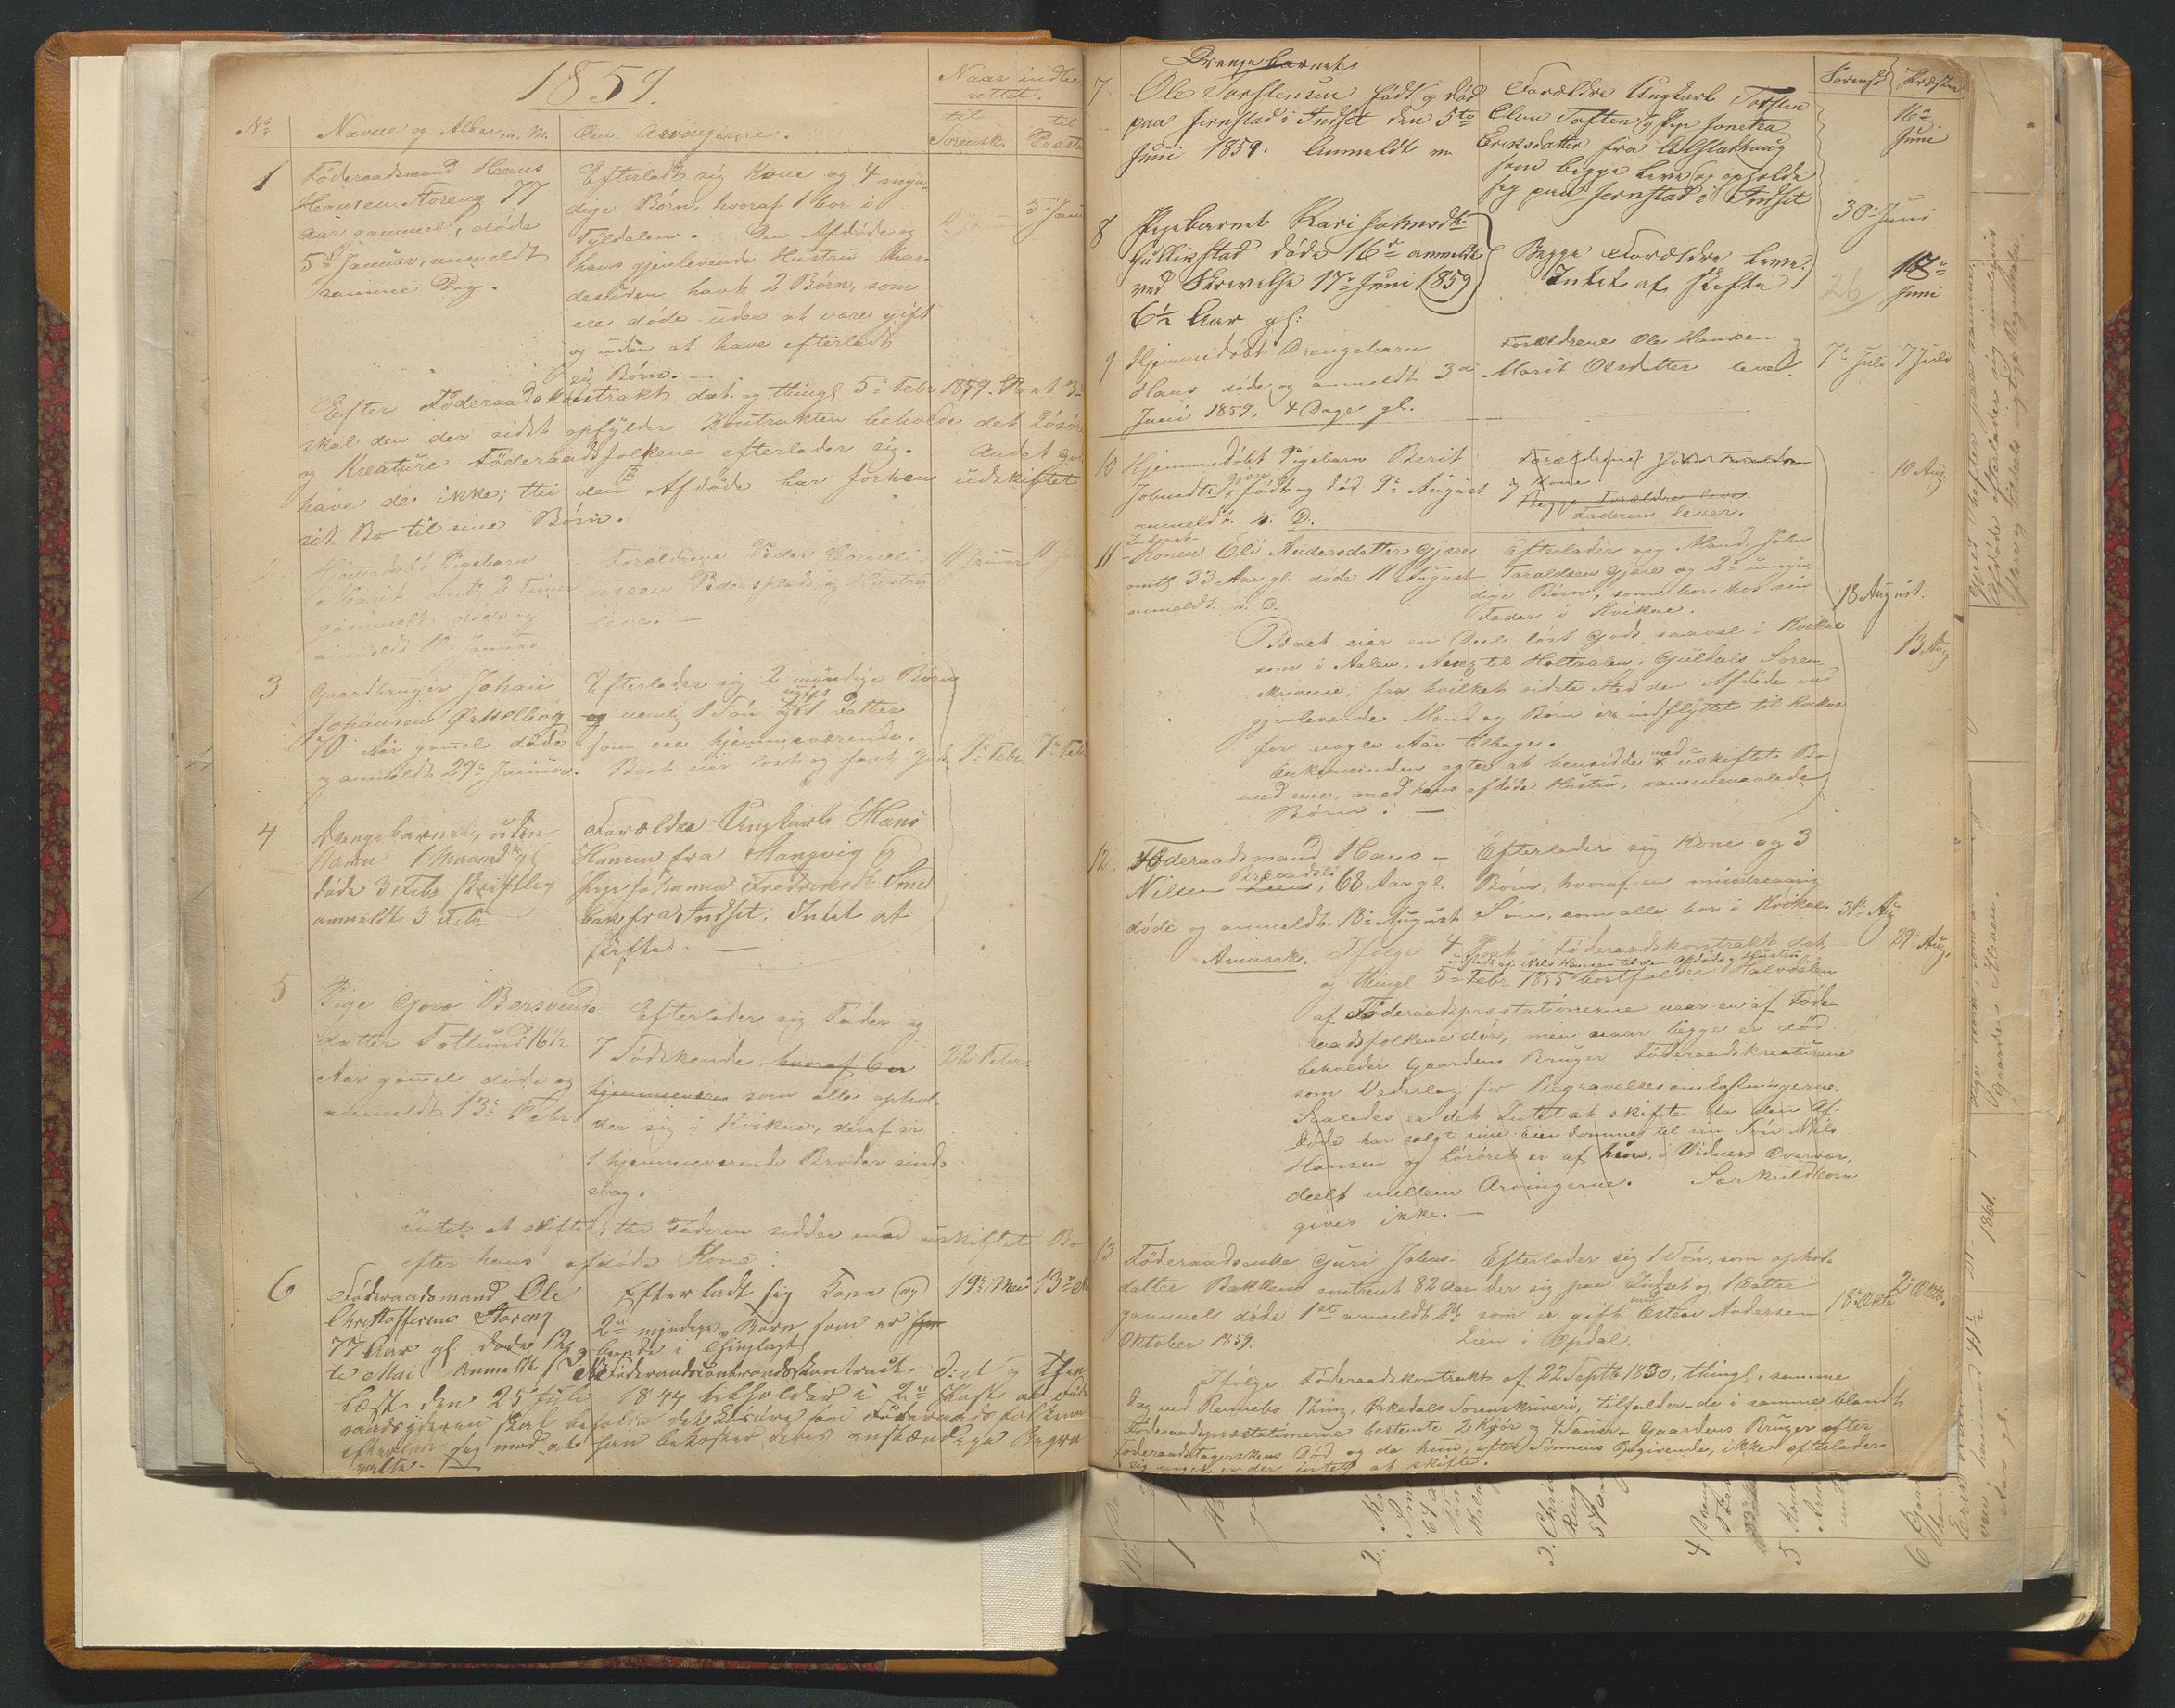 1859.
Naar indbe-
rettet.
No
Navne og Alder m. M.
Om Arvingerne.
til Sorensk.
til Præsten
1
Föderaadsmand Hans
Hansen Storeng 77
Aar gammel, döde
5te Januar, anmeldt
samme Dag.
Efterladt sig Kone og 4 myn-
dige Börn, hvoraf 1 bor i
Tyldalen. Den Afdöde og
hans gjenlevende Hustru har
desuden havt 2 Börn, som
ere döde uden at være gift
og uden at have efterladt
sig Börn.
5 Janu
Efter Föderaadskontrakt dat. og thingl. 5te Febr 1859. Post 3
skal den der sidst opfylder Kontrakten beholde det Lösöre
og Kreature Föderaadsfolkene efterlader sig. Andet
have de ikke; thi den Afdöde har forhen udskiftet
sit Bo til sine Börn.
2
Hjemmedöbt Pigebarn
Marit 2 Timer
gammelt döde og
anmeldt 10 Januar
Forældrene Peder
Pedersplads og Hustru
leve.
11 Januar
11
3
Gaardbruger Johan
Johansen Orkelbog
70 Aar gamel döde
og anmeldt 29de Januar.
Efterlader sig 2 myndige Börn
og nemlig 1 Sön og 1 ugift Datter
som ere hjemmeværende.
Boet eier löst og fast Gods
7de Febr
7de Feb
4
Drengebarnet, uden
Navn 1 Maaned gl
döde 3 Febr skriftlig
anmeldt 3 Febr
Forældre Ungkarl Hans
Hansen fra Stangvig og
Pige Johanna Fredriksdt. Smed
bak fra Indset. Intet at
skifte.
5
Pige Goro Bersvends-
datter Totlund 16½
Aar gamel döde og
anmeldt 13de Febr
Efterlader sig Fader og
7 Södskende hvoraf 6 er
hjemmeværende som alle ophol-
der sig i Kvikne, deraf er
1 hjemmeværende Broder sinds-
svag.
22 Febr.
Intet at skifte; thi Faderen sidder med uskiftet Bo
efter hans afdöde Kone.
6
Föderaadsmand Ole
Christoffersen Storeng
77 Aar gl. döde 12
te Mai Anmeldt
Efterladt sig Kone og
2de myndige Börn som er hjem
19de Mai
13de
Föderaadskontrakt
læst den 25 Juli 1844 tilholder i 2den Post at Föde
raadsyderen skal beholde det Lösöre som Föderaads folkene
efterlader sig mod at han bekoster deres anstændige Begra
velse.
Sorensk
Præsten
7
Drengebarnet
Ole Torstensen född og död
paa Jernstad i Indset den 5te
Juni 1859. Anmeldt
Forældre Ungkarl Torsten
Olsen Toften og Pige Jonetta
Eriksdatter fra Alstahaug
som begge leve og opholde
sig paa Jernstad i Indset
16de
Juni
8
Pigebarnet Kari Johnsdt.
Gullikstad döde 16de anmeldt
ved Skrivelse 17de Juni 1859
6½ Aar gl:
Begge Forældre leve.
Intet at skifte
30te Juni
26
17de
Juni
9
Hjemmedöbt Drengebarn
Hans döde og anmeldt 3de
Juni 1859. 4 Dage gl.
Forældrene Ole Hansen og
Marit Olsdatter lever
7de Juli
7 Juli
10
Hjemmedöbt Pigebarn Berit
Johnsdt. Gjære födt og död 9de August
anmeldt. s. D.
Forældrene John Taraldsen
og Kone
Begge Forældre leve.
Faderen lever.
10 Aug.
11
Inderst-
konen Eli Andersdatter Gjære
omtr. 33 Aar gl. döde 11 August
anmeldt s. D.
Efterlader sig Mand John
Taraldsen Gjære og 2de umyn-
dige Börn, som bor hos sin
Fader i Kvikne.
18 August.
13 Aug
Boet eier en Deel löst Gods saavel i Kvikne
som i Aalen, Annex til Holtaalen, Guldals Soren-
skriverie, fra hvilket sidste Sted den Afdöde med
gjenlevende Mand og Börn ere indflyttet til Kvikne
for nogle Aar tilbage.
Enkemanden agter at hensidde med uskiftet Bo
med sine, med hans afdöde Hustru, sammenavlede
Börn. —
12.
Föderaadsmand Hans
Nilsen Lien, 68 Aar gl.
döde og anmeldt 18de August
Efterlader sig Kone og 3
Börn, hvoraf en mindreaarig
Sön, som alle bor i Kvikne.
31te Aug
29de Aug.
Anmærk. Ifölge 4 Post i Föderaadskontrakt dat.
udstedt af Nils Hansen til den Afdöde og Hustru
og thingl. 5te Febr 1855 bortfalder Halvdelen
af Föderaadspræstationerne naar en af Föde-
raadsfolkene dör, men naar begge er död
beholder Gaardens Bruger Föderaadskreaturene
som Vederlag for Begravelsesomkostningerne.
Saaledes er det Intet at skifte da den Af-
döde har solgt sine Eiendomme til sin Sön Nils
Hansen og Lösöret er af ham, i Vidners Overvær,
deelt mellem Arvingerne. Særkuldbörn
gives ikke. —
13
Föderaadsenke Guri Johns-
datter Bakken omtrent 82 Aar
gammel döde 1ste anmeldt 2de
Oktober 1859.
Efterlader sig 1 Sön, som ophol-
der sig paa Indset og 1 Datter
som er gift med Esten Andersen
Lien i Opdal.
18de Okto
2de Oktb.
Ifölge Föderaadskontrakt af 22 Septb 1830, thingl. samme
Dag ved Rennebo Thing, Orkedals Sorenskriveri, tilfalder de i samme blandt
Föderaadspræstationerne bestemte 2 Kjör og 4 Sauer Gaardens Bruger efter
Föderaadstagerskens Död og da hun, efter Sönnens Opgivende, ikke efterlader
sig noget, er der intet at skifte.